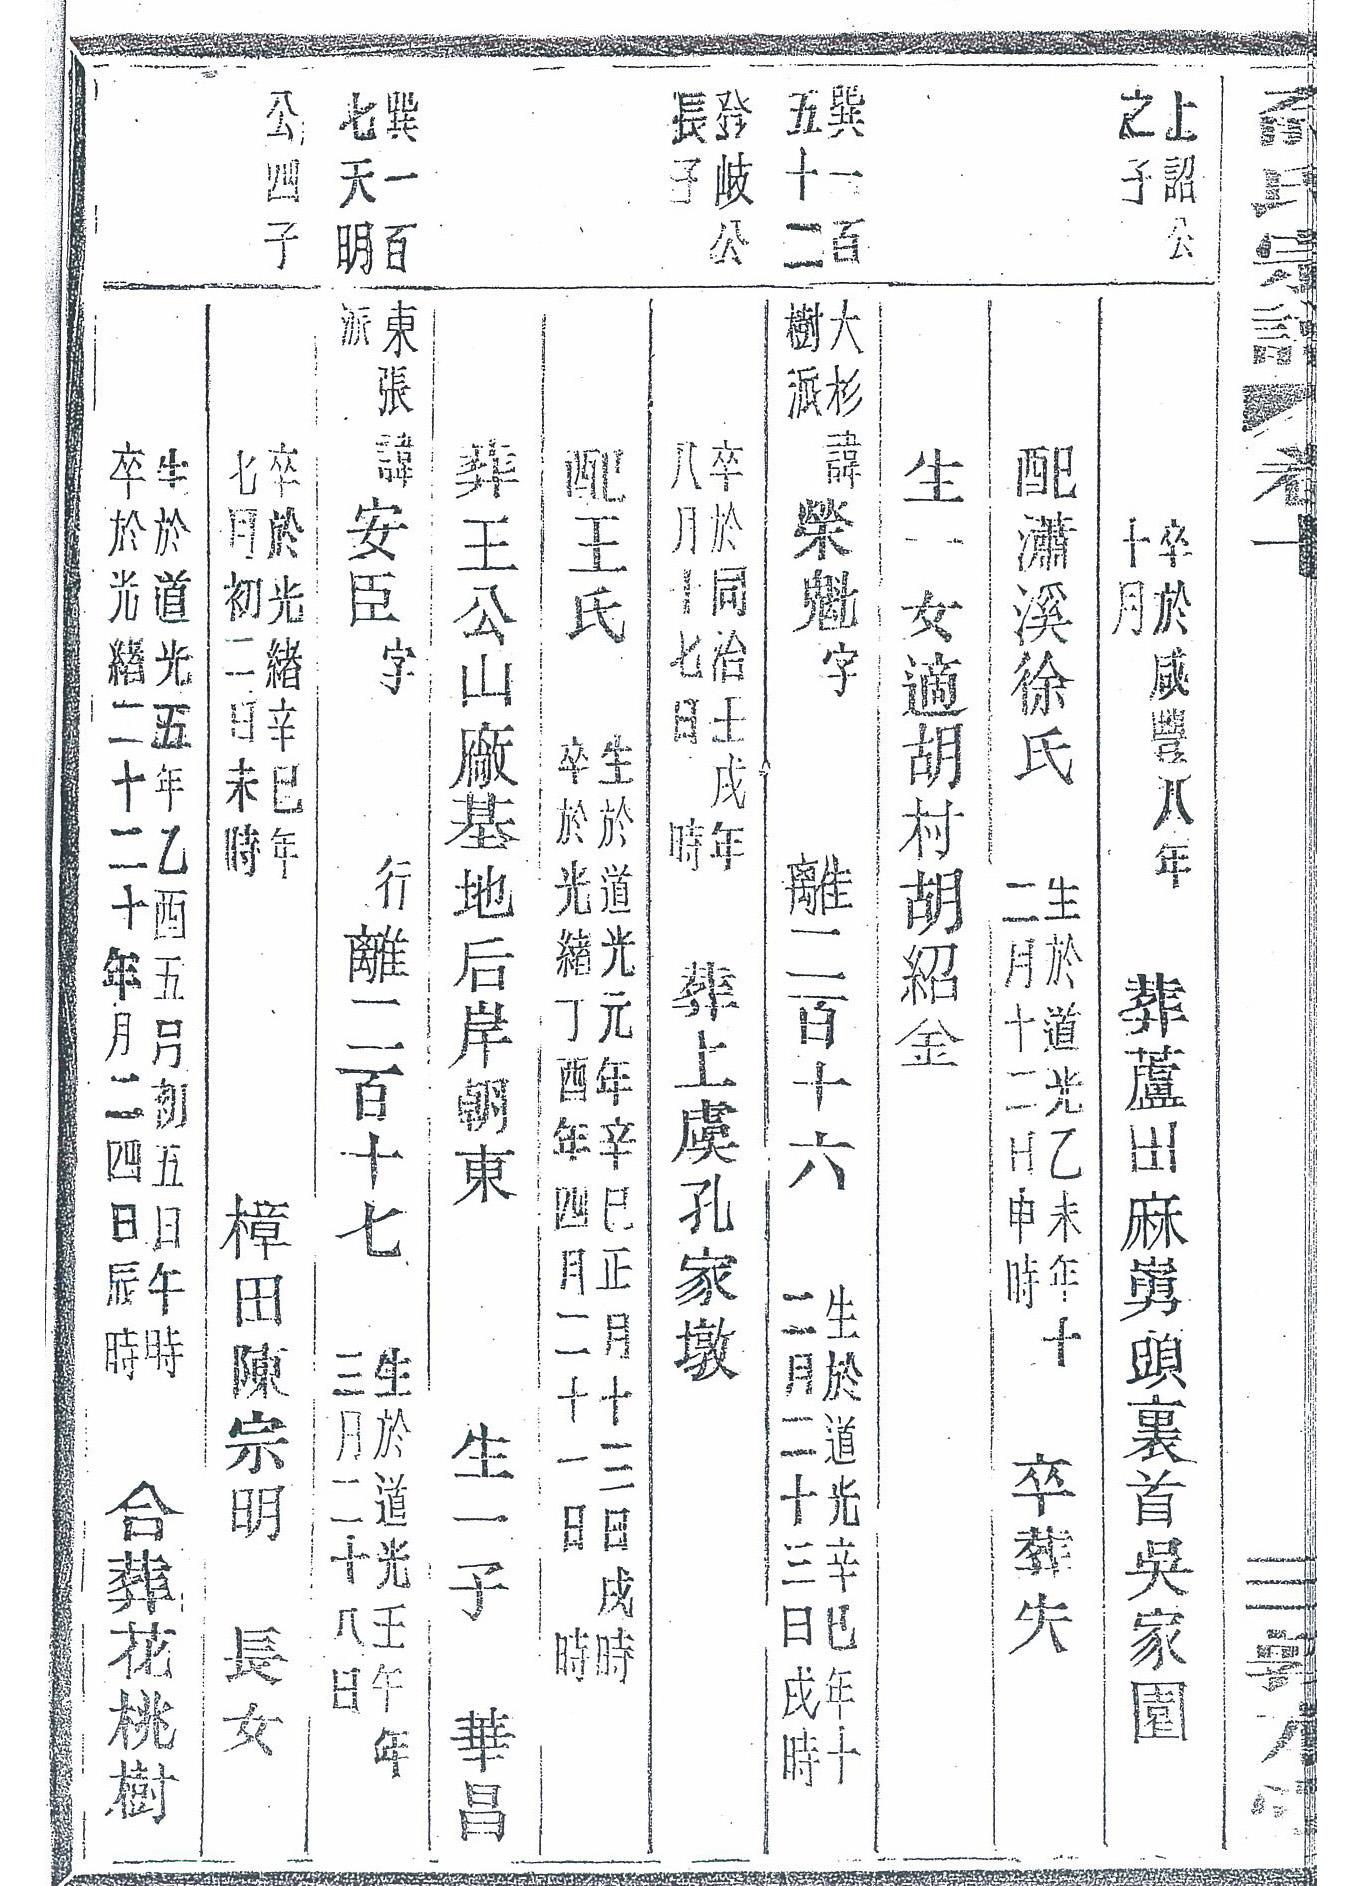 氏宗譜 卷十
上詔公
之子
卒於咸豐八年
十月
葬蘆出麻舅頭裏首吳家園
配瀟溪徐氏
生於道光乙未年十
二月十二日申時
卒葬失
生一女適胡村胡紹金
巽一百
五十二
大杉
樹派
諱榮魁字
離二百十六
生於道光辛巳年十
二月二十三日戌時
發岐公
長子
卒於同治壬戌年
八月十七日 時
葬上虞孔家墩
配王氏
生於道光元年辛巳正月十三日戌時
卒於光緒丁酉年四月二十一日 時
葬王公山廠基地后岸朝東
生一子 華昌
巽一百
七天明
東張
派
諱安臣字
行離二百十七
生於道光壬午年
三月二十八日
公四子
卒於光緒辛巳年
七月初二日未時
樟田陳宗明 長女
生於道光五年乙酉五月初五日午時
卒於光緒二十二十年月二四日辰時
合葬花桃樹